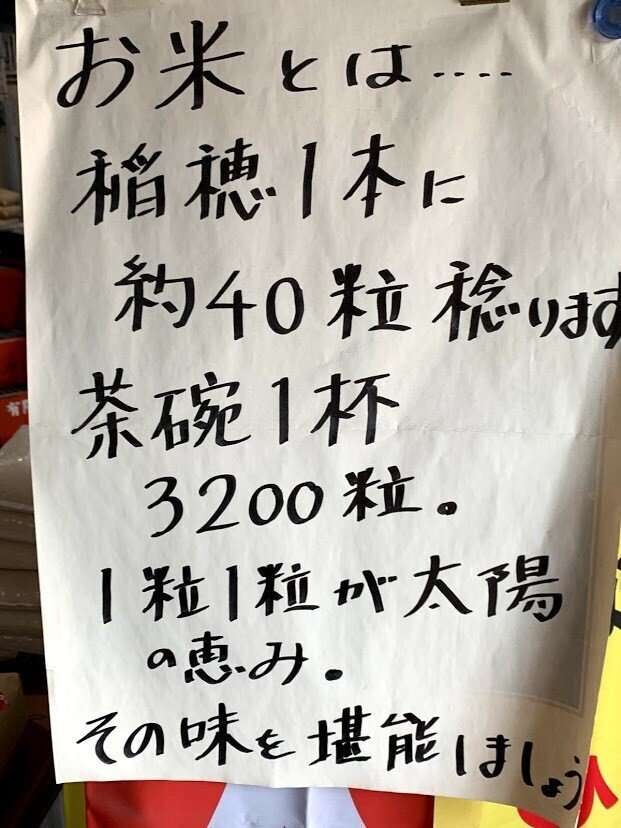 お米とは....
稲穂1本に
約40粒稔ります
茶碗1杯
3200粒。
1粒1粒が太陽
の恵み。
その味を堪能しましょう